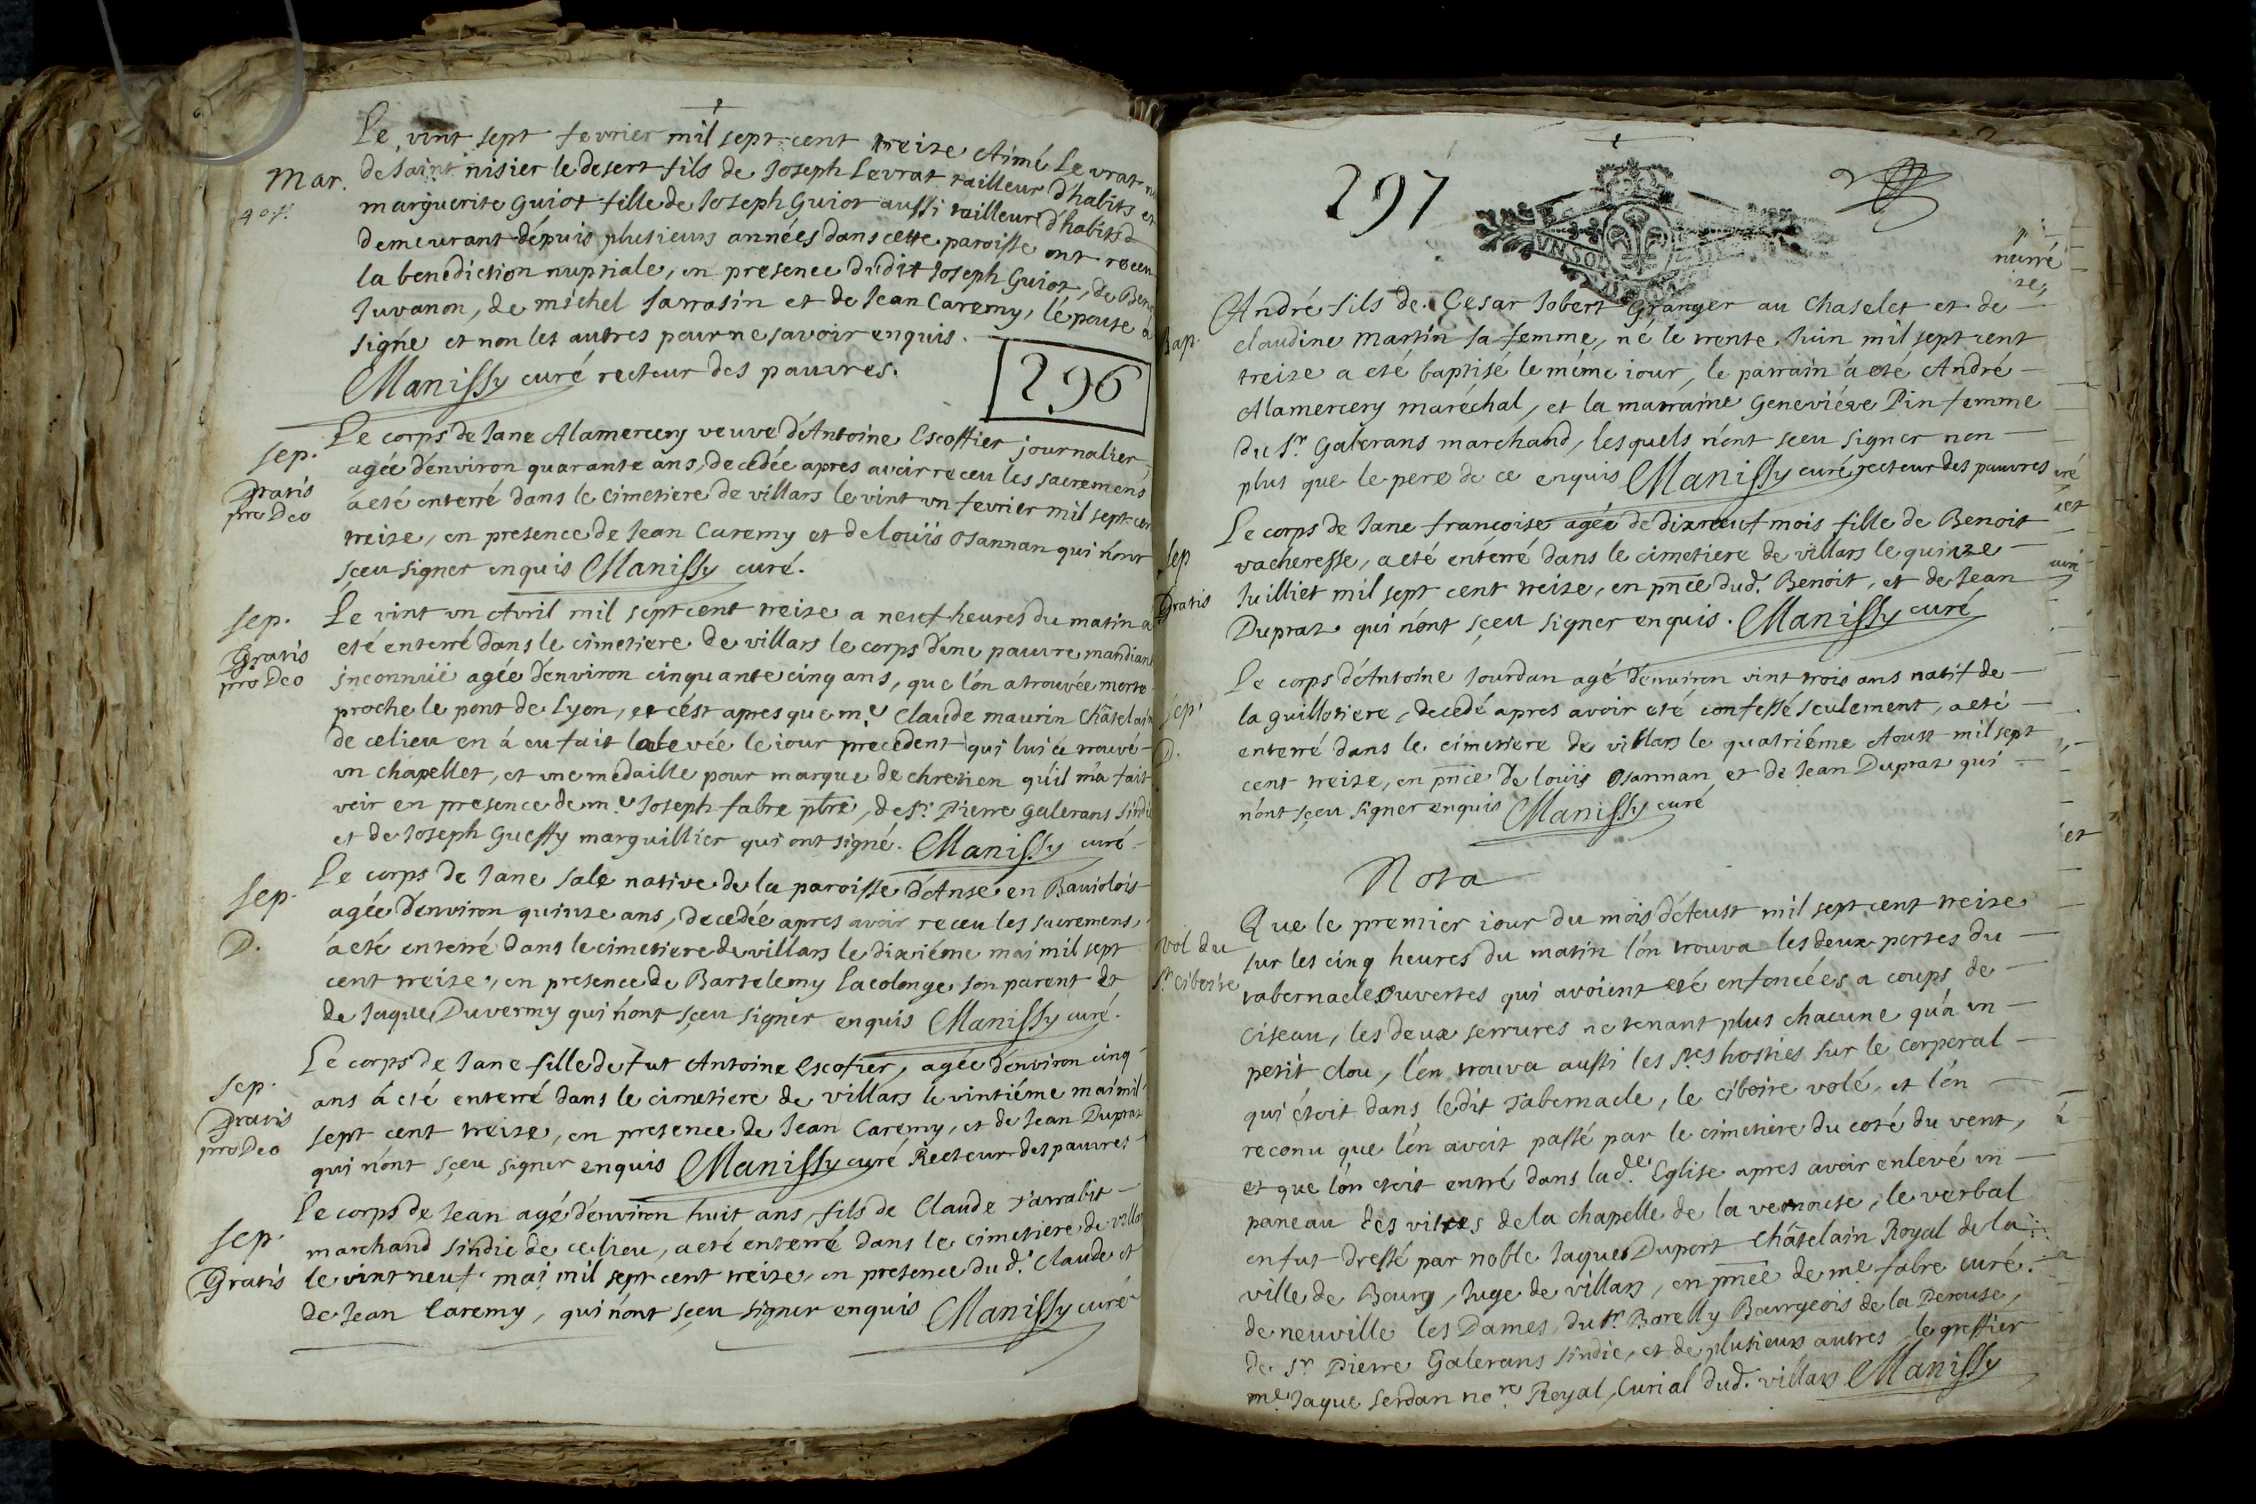 Le vint sept fevrier mil sept cent treize Aimé Levrat
Mar. de saint nisier le desert fils de Joseph Levrat tailleur d'habits et
marguerite Guiot fille de Joseph Guiot aussi tailleur d'habits
demeurant dépuis plusieurs années dans cette paroisse ont receu
la benediction nuptiale, en presence dudit Joseph Guiot, de
Juvanon, de michel Sarrasin et de Jean Caremy, l'épouse a
signé et non les autres pour ne savoir enquis.
Manissy curé recteur des pauvres.
296
Sep. Le corps de Jane Alamercery veuve d'Antoine Escoffier journalier
agée d'environ quarante ans, decedée apres avoir receu les sacremens
Gratis pro Deo
á eté enterré dans le cimetiere de villars le vint un fevrier mil sept cen
treize, en presence de Jean Caremy et de loüis Osannan qui n'ont
sçeu signer enquis Manissy curé.
Sep. Le vint un Avril mil sept cent treize a neuf heures du matin á
Gratis pro Deo
eté enterré dans le cimetiere de villars le corps d'une pauvre mandiant
inconnüe agée d'environ cinquante cinq ans, que l'on a trouvée morte
proche le pont de Lyon, et c'est apres que me Claude maurin Châtelain
de ce lieu en á eu fait la levée le iour precedent qui lui á trouvé
un chapellet, et une médaille pour marque de chretien qu'il m'a fait
voir en presence de me Joseph fabre pbre, de sr. Pierre Galerans sindic
et de Joseph Gueffy marguillier qui ont signé. Manissy curé
Sep. Le corps de Jane Sale native de la paroisse d'Anse en Baujolois
D. agée d'environ quinze ans, decedée apres avoir receu les sacremens,
á eté enterré dans le cimetiere de villars le dixiéme mai mil sept
cent treize, en presence de Bartelemy Lacolonge son parent et
de Jaque Duvermy qui n'ont sçeu signer enquis Manissy curé.
Sep. Le corps de Jane fille de fut Antoine Escofier, agée d'environ cinq
Gratis pro Deo
ans á eté enterré dans le cimetiere de villars le vintiéme mai mil
sept cent treize, en presence de Jean Caremy, et de Jean Duprat
qui n'ont sçeu signer enquis Manissy curé Recteur des pauvres
Sep. Le corps de Jean agé d'environ huit ans, fils de Claude Tarrabit
Gratis
marchand sindic de ce lieu, a eté enterré dans le cimetiere de villars
le vint neuf mai mil sept cent treize, en presence du d. Claude et
de Jean Caremy, qui n'ont sçeu signer enquis Manissy curé
297
UN SOL
Bap. André fils de Cesar Jobert Granger au Chaselet et de
claudine Martin sa femme, né le trente Juin mil sept cent
treize a eté baptisé le méme iour, le parrain á eté André
Alamercery maréchal, et la marraine Geneviéve Pin femme
du Sr. Galerans marchand, lesquels n'ont sçeu signer non
plus que le pere de ce enquis Manissy curé recteur des pauvres
Sep Le corps de Jane francoise agée de dixneuf mois fille de Benoit
Gratis
vacheresse, a eté enterré dans le cimetiere de villars le quinze
Juilliet mil sept cent treize, en pnce dud. Benoit, et de Jean
Duprat qui n'ont sçeu signer enquis. Manissy curé
Sep. Le corps d'Antoine Jourdan agé d'environ vint trois ans natif de
D. la guillotiere, decedé apres avoir eté confessé seulement, a eté
enterré dans le cimetiere de villars le quatriéme Aoust mil sept
cent treize, en pnce de loüis Osannan et de Jean Duprat qui
n'ont sçeu signer enquis Manissy curé
Nota
Que le premier iour du mois d'Aoust mil sept cent treize
vol du St. Ciboire
sur les cinq heures du matin l'on trouva les deux portes du
tabernacle ouvertes qui avoient eté enfoncées a coups de
Ciseau, les deux serrures ne tenant plus chacune qu'á un
petit clou, l'on trouva aussi les Stes hosties sur le corporal
qui étoit dans ledit Tabernacle, le Ciboire volé, et l'on
reconu que l'on avoit passé par le cimetiere du coté du vent,
et que l'on etoit entré dans lad.e Eglise apres avoir enlevé un
paneau des vitres de la chapelle de la vernouse, le verbal
en fut dressé par noble Jaques Duport Châtelain Royal de la
ville de Bourg, Juge de villars, en pnce de me fabre curé
de neuville les Dames, du sr. Borelly Bourgeois de la Perouse,
de Sr Pierre Galerans sindic, et de plusieurs autres, le greffier
me. Jaque Serdan nore Royal, Curial dud. villars Manissy